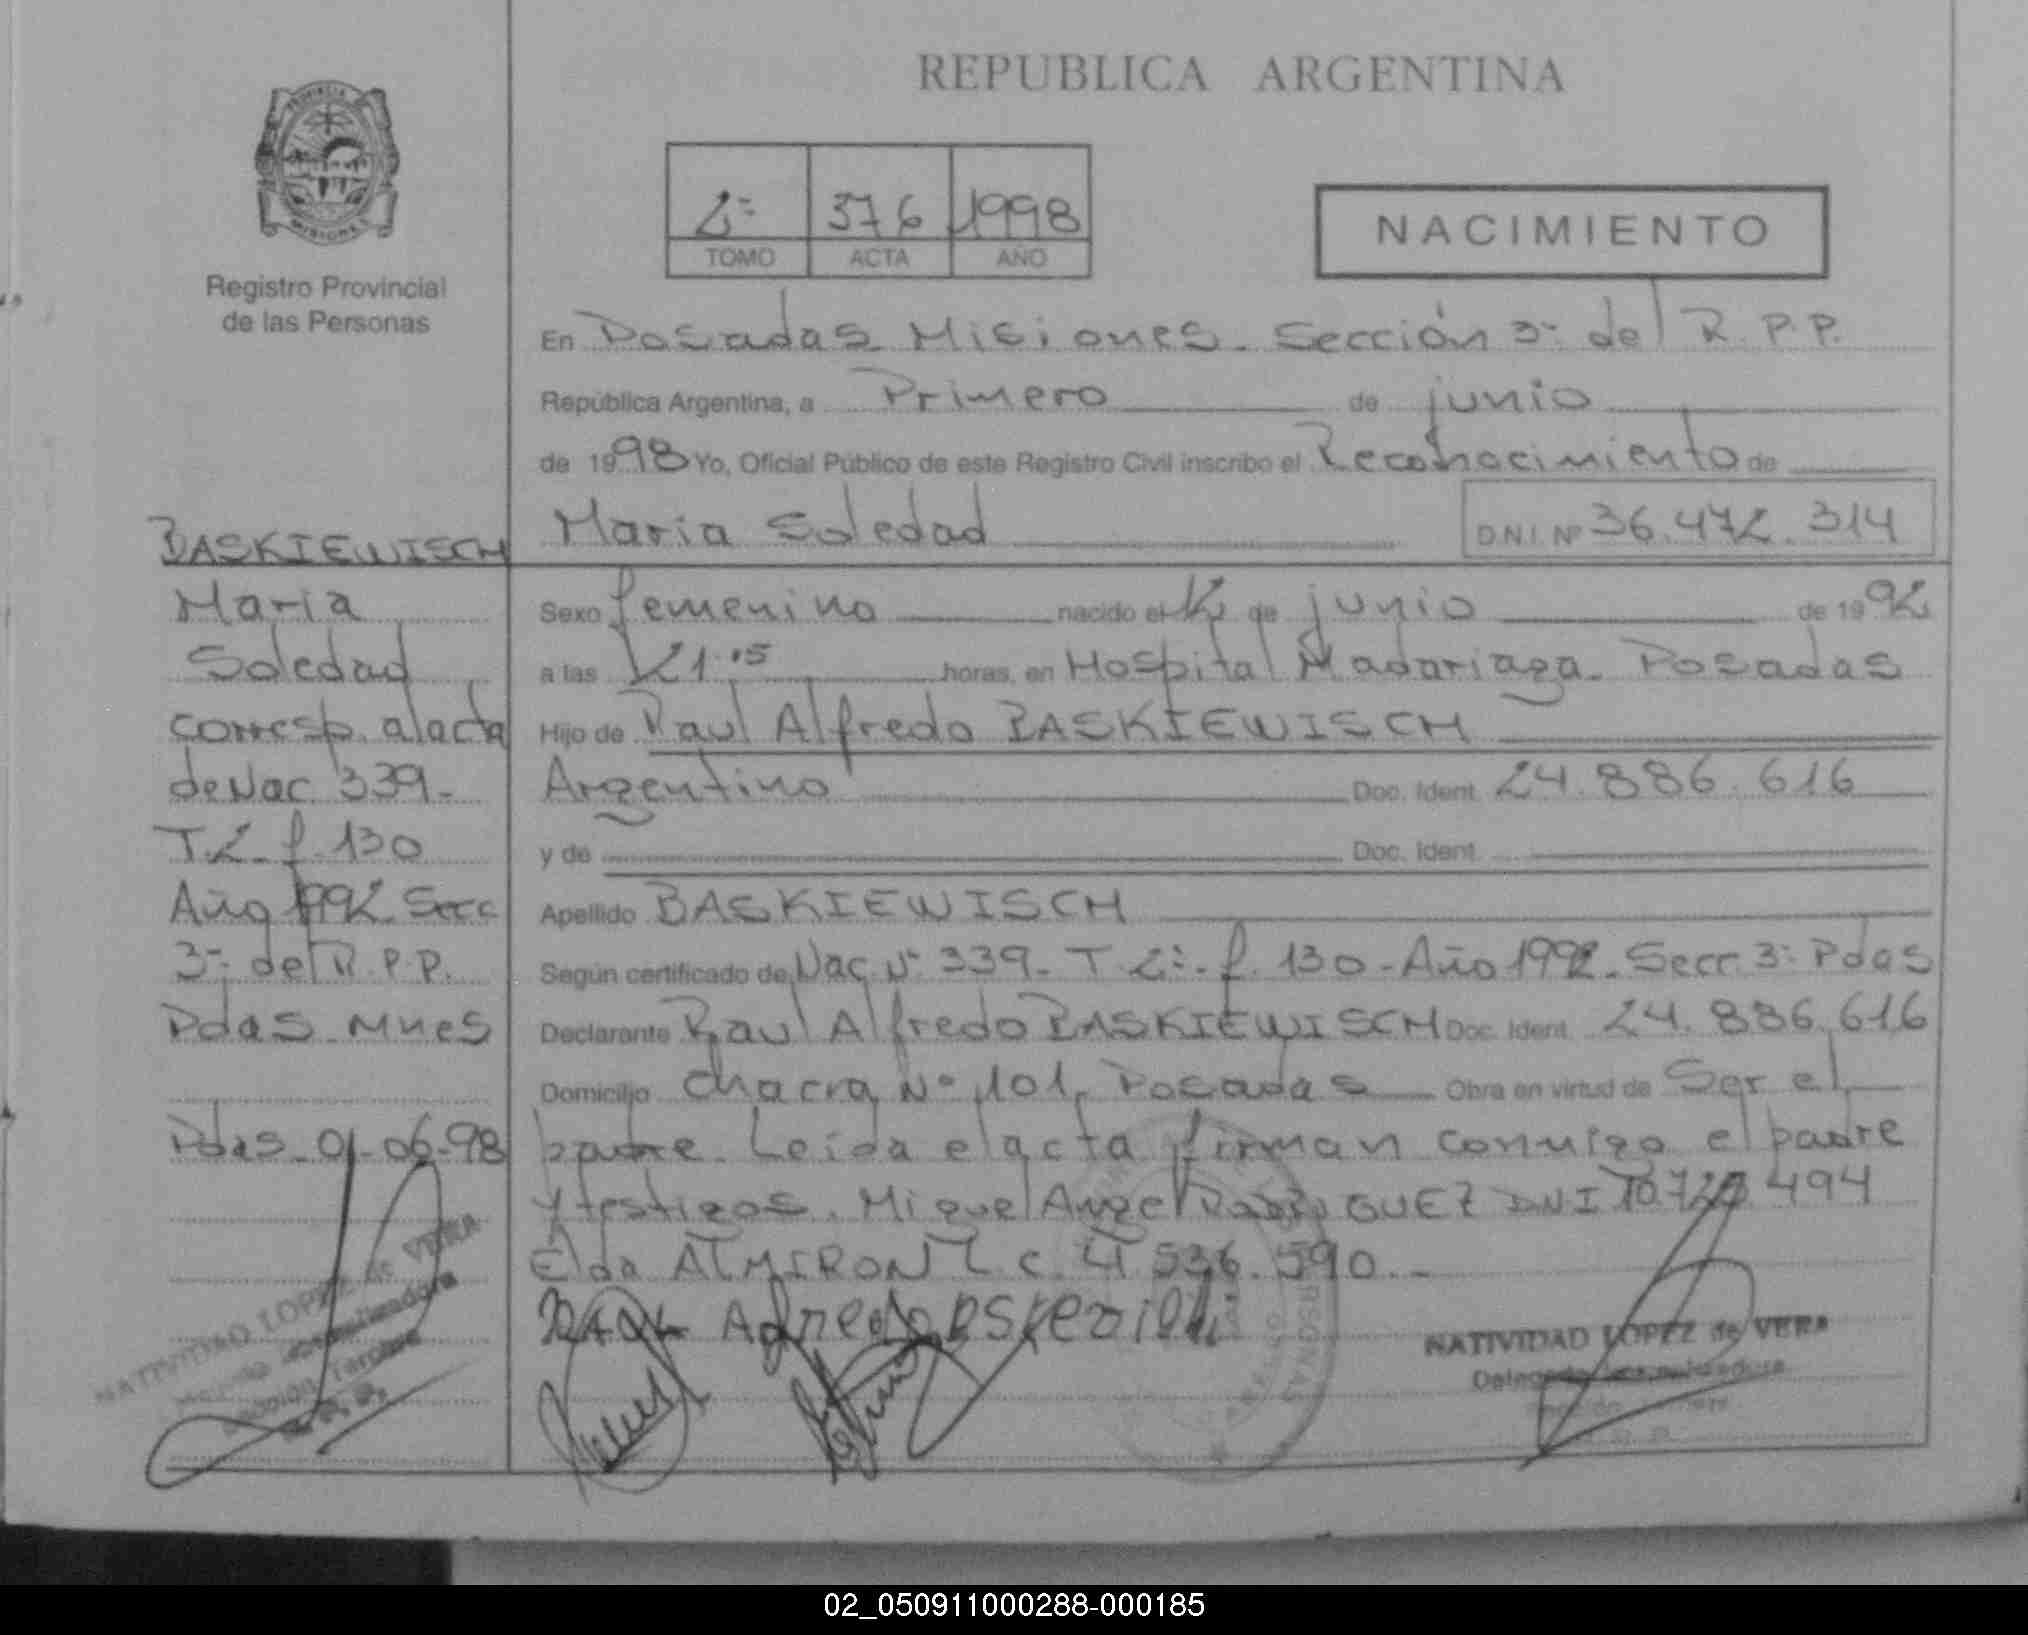 REPUBLICA ARGENTINA
PROVINCIA
MISIONES
Registro Provincial
de las Personas
2º 376 1998
TOMO ACTA AÑO
NACIMIENTO
En Posadas Misiones. Sección 3º del R.P.P.
República Argentina, a Primero de junio
de 1998 Yo, Oficial Público de este Registro Civil inscribo el Reconocimiento de
Maria Soledad D.N.I. Nº 36.472.314
BASKIEWISCH
Maria
Soledad
corresp. al acta
de Nac 339-
T.2- f. 130
Año 1992 Secc
3º del R.P.P.
Pdas Mnes
Pdas 01-06-98
NATIVIDAD LOPEZ de VERA
Sexo femenino nacido el 12 de junio de 1992
a las 21.05 horas, en Hospital Madariaga. Posadas
Hijo de Raul Alfredo BASKIEWISCH
Argentino Doc. Ident. 24.886.616
y de Doc. Ident.
Apellido BASKIEWISCH
Según certificado de Nac. Nº 339- T. 2º- f. 130- Año 1992. Secc 3º Pdas
Declarante Raul Alfredo BASKIEWISCH Doc. Ident. 24.886.616
Domicilio Chacra Nº 101, Posadas Obra en virtud de Ser el
padre. Leída el acta firman conmigo el padre
y testigos. Miguel Angel RODRIGUEZ DNI 494
Elda ALMIRON L.C. 4.536.590.-
NATIVIDAD LOPEZ de VERA
02_050911000288-000185